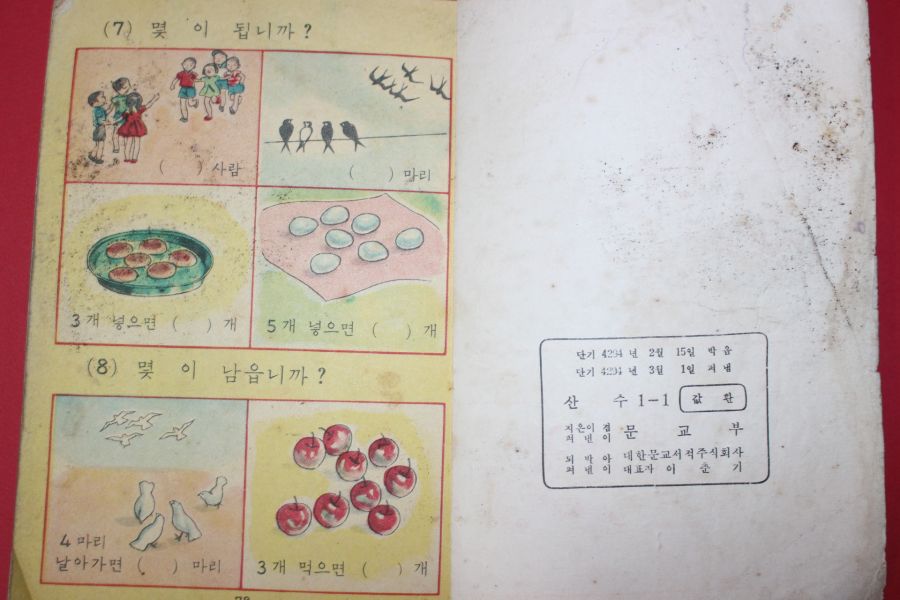 (7) 몇 이 됩니까?
( ) 사람
( ) 마리
3개 넣으면 ( ) 개
5개 넣으면 ( ) 개
(8) 몇 이 남읍니까?
4마리
날아가면 ( ) 마리
3개 먹으면 ( ) 개
단기 4294 년 2월 15일 박음
단기 4294 년 3월 1일 펴냄
산 수 1-1
값 환
지은이 겸
펴 낸 이 문 교 부
되 박 아 대한문교서적주식회사
펴 낸 이 대표자 이 춘 기